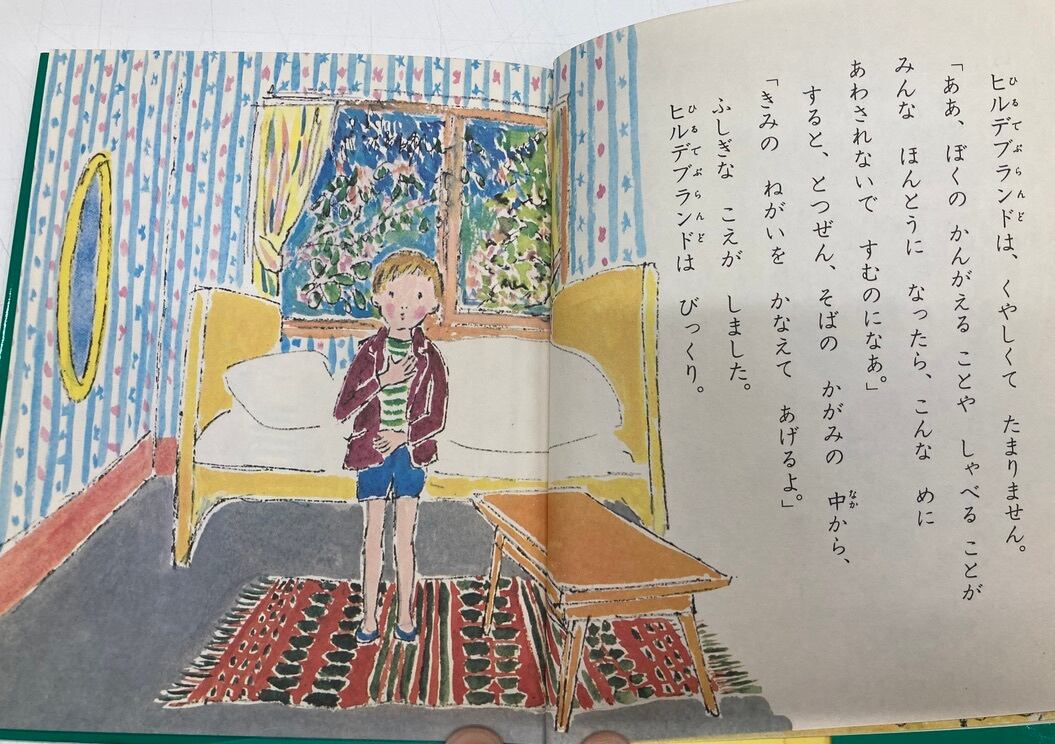 ヒルデブランドは、くやしくて　たまりません。
「ああ、ぼくの　かんがえる　ことや　しゃべる　ことが
みんな　ほんとうに　なったら、こんな　めに
あわされないで　すむのになあ。」
すると、とつぜん、そばの　かがみの　中から、
「きみの　ねがいを　かなえて　あげるよ。」
ふしぎな　こえが　しました。
ヒルデブランドは　びっくり。